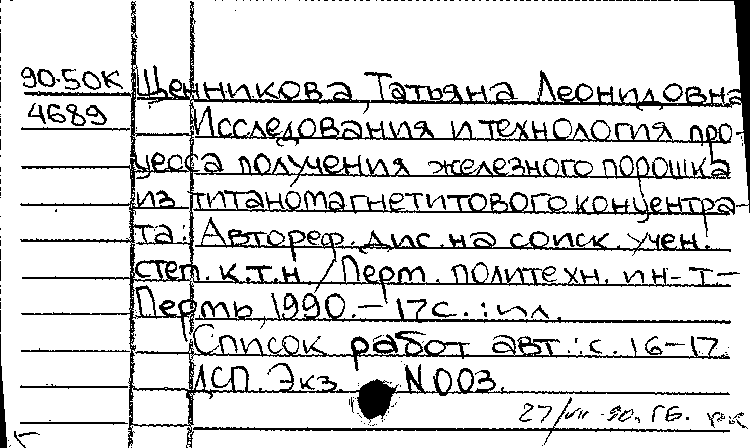 90-50К Щенникова, Татьяна Леонидовна
4689 Исследования и технология про-
цесса получения железного порошка
из титаномагнетитового концентра-
та: Автореф. дис. на соиск. учен.
степ. к.т.н. / Перм. политехн. ин-т. -
Пермь, 1990. - 17 с. : ил.
Список работ авт.: с. 16-17.
ДСП. Экз. N 003.
27/VII-90. ГБ. рк